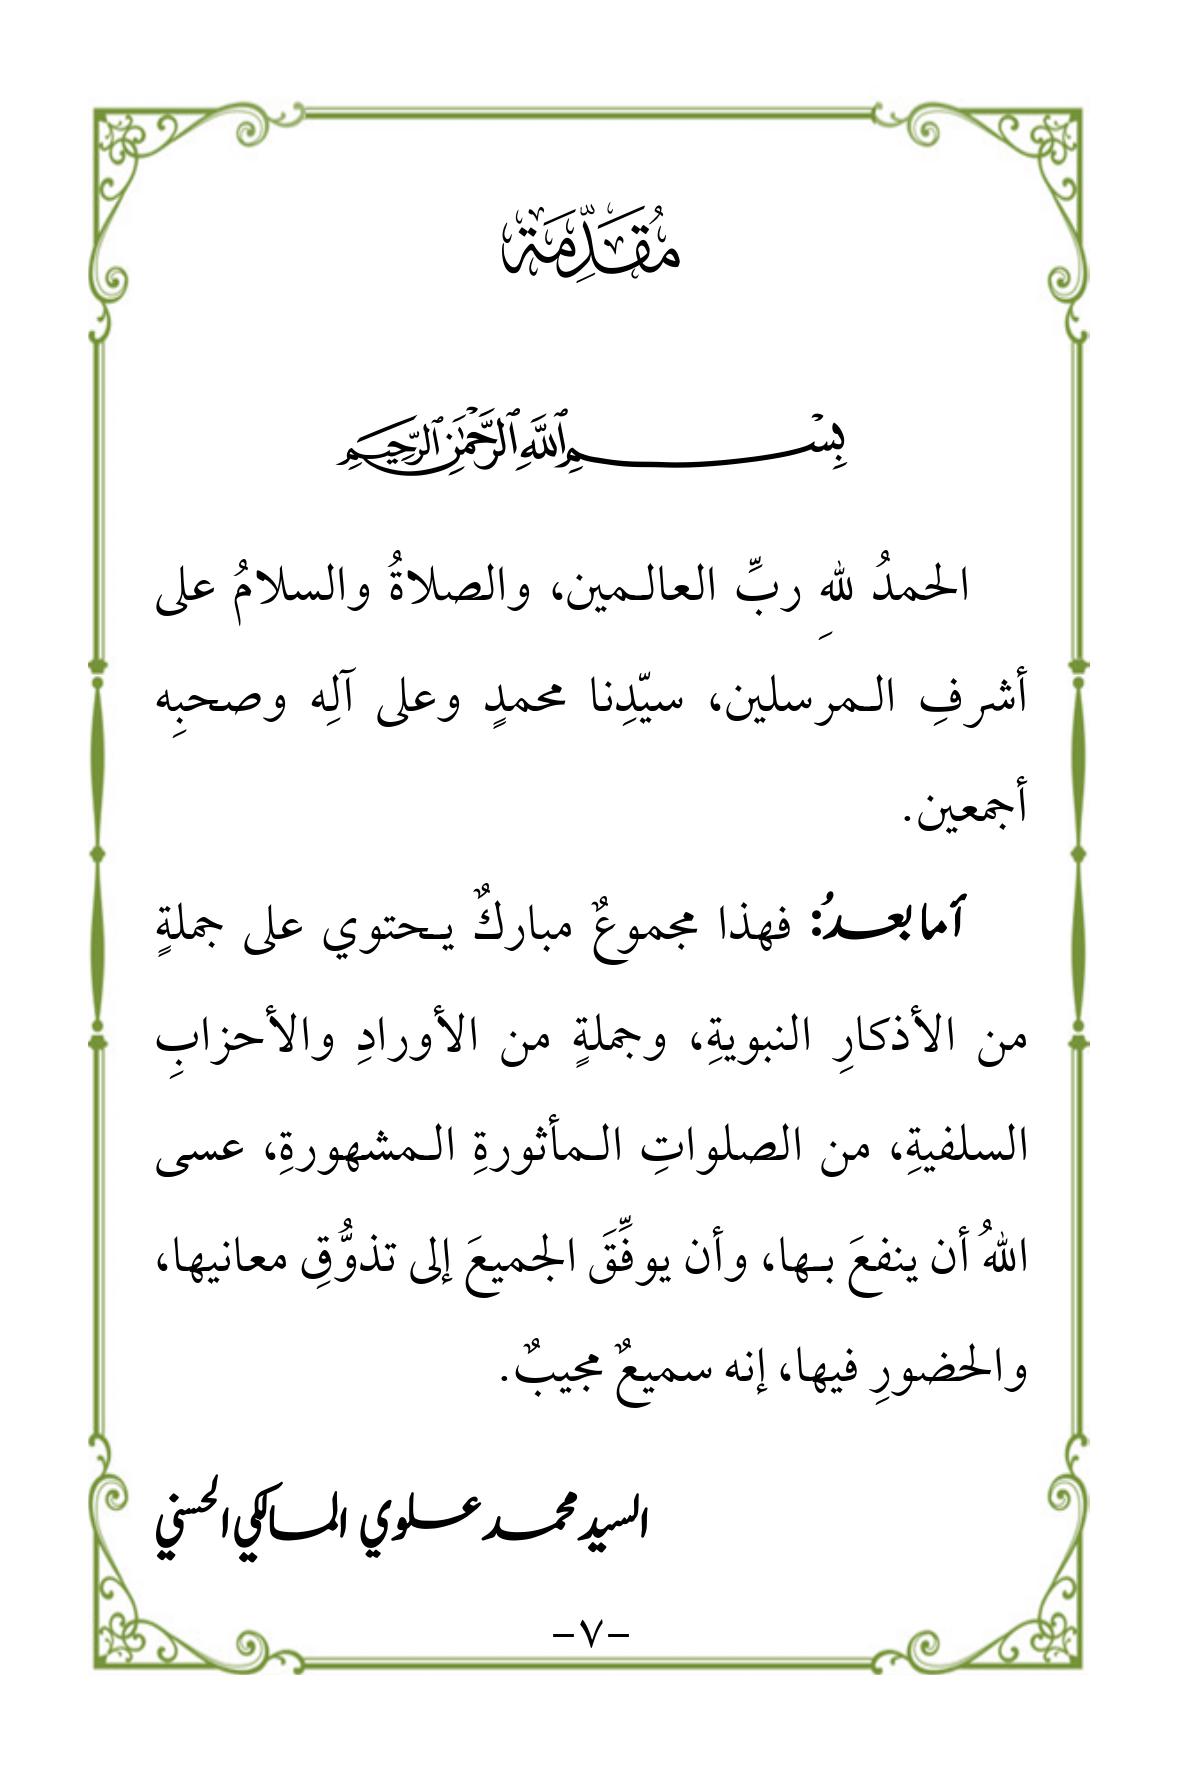 مُقَدِّمَة
بِسْمِ ٱللَّهِ ٱلرَّحْمَٰنِ ٱلرَّحِيمِ
الحمدُ للهِ ربِّ العالـمين، والصلاةُ والسلامُ على
أشرفِ الـمرسلين، سيّدِنا محمدٍ وعلى آلِه وصحبِه
أجمعين.
أما بعـدُ: فهذا مجموعٌ مباركٌ يـحتوي على جملةٍ
من الأذكارِ النبويةِ، وجملةٍ من الأورادِ والأحزابِ
السلفيةِ، من الصلواتِ الـمأثورةِ الـمشهورةِ، عسى
اللهُ أن ينفعَ بـها، وأن يوفِّقَ الجميعَ إلى تذوُّقِ معانيها،
والحضورِ فيها، إنه سميعٌ مجيبٌ.
السيد محمد علوي المالكي الحسني
–٧–